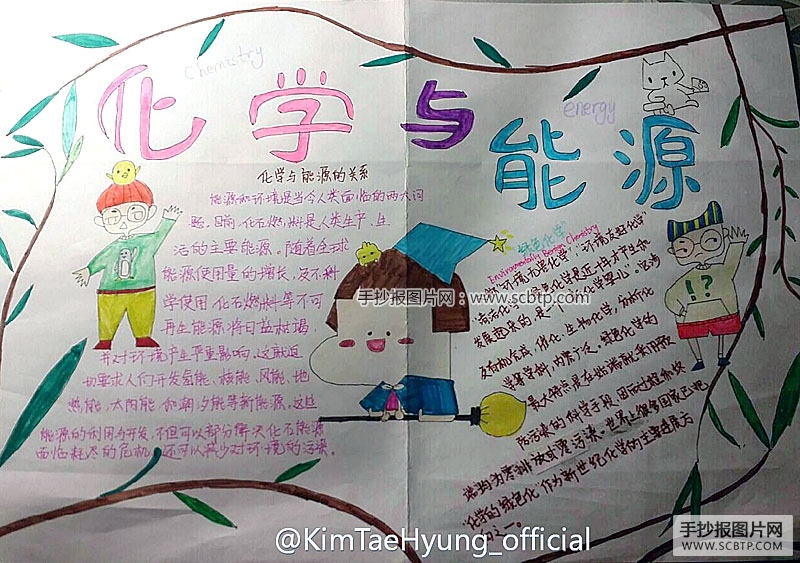 Chemistry
化学与
energy
能源
化学与能源的关系
能源和环境是当今人类面临的两大问
题。目前，化石燃料是人类生产、生
活的主要能源。随着全球
能源使用量的增长，及不科
学使用，化石燃料等不可
再生能源将日益枯竭，
并对环境产生严重影响。这就迫
切要求人们开发氢能、核能、风能、地
热能、太阳能和潮汐能等新能源。这些
能源的利用与开发，不但可以部分解决化石能源
面临耗尽的危机，还可以减少对环境的污染。
绿色化学
Environmentally Benign Chemistry
"环境无害化学"、"环境友好化学"
"清洁化学"。绿色化学是近
发展起来的是一个"化学婴儿"。它涉
及有机合成、催化、生物化学、分析化
学等学科，内容广泛。绿色化学的
最大特点是在始端就采用预
防污染的科学手段，因而过程和终
端均为零排放或零污染。世界上很多国家已把
"化学的绿色化"作为新世纪化学的主要进展方
向之一。
!?
手抄报图片网：www.scbtp.com
@KimTaeHyung_official
手抄报图片网
WWW.SCBTP.COM